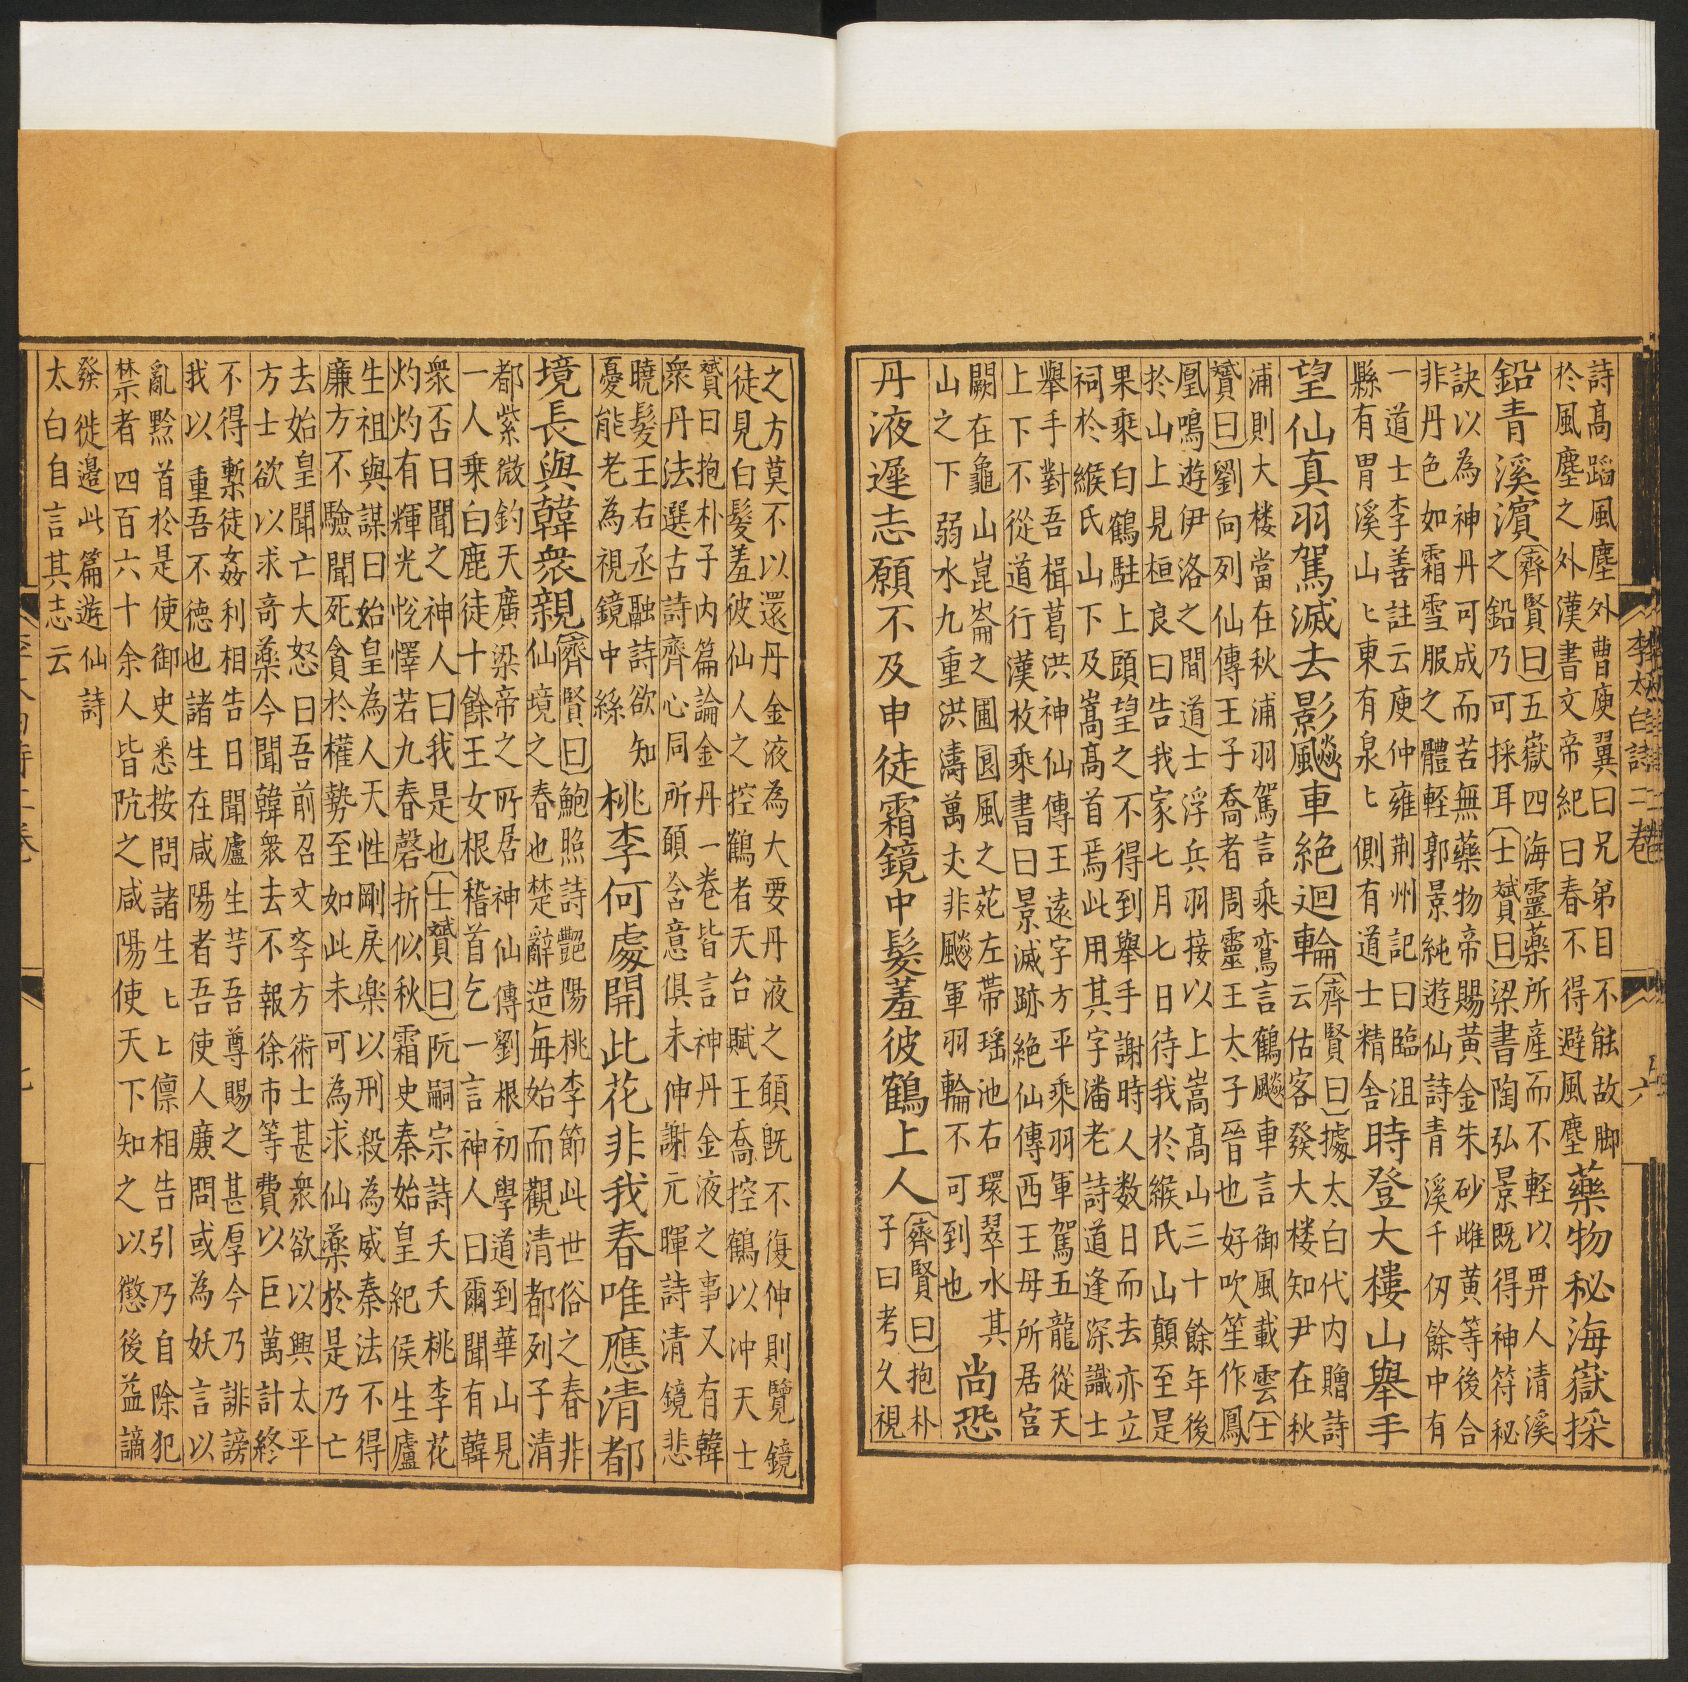 詩高蹈風塵外曹庾翼曰兄弟目不能故脚
於風塵之外漢書文帝紀曰春不得避風塵
藥物秘海嶽採
鉛青溪濵
齊賢曰五嶽四海靈藥所產而不軽以畀人清溪
之鉛乃可採耳士贇曰梁書陶弘景既得神符秘
訣以為神丹可成而苦無藥物帝賜黃金朱砂雌黃等後合
非丹色如霜雪服之體輕郭景純遊仙詩青溪千仞餘中有
一道士李善註云庾仲雍荆州記曰臨沮
縣有胃溪山匕東有泉匕側有道士精舎
時登大樓山舉手
望仙真羽駕滅去影飈車絕迴輪
齊賢曰據太白代内贈詩
云估客發大楼知尹在秋
浦則大楼當在秋浦羽駕言乘鸞言鶴飈車言御風載雲士
贇曰劉向列仙傳王子喬者周靈王太子晉也好吹笙作鳳
凰鳴遊伊洛之間道士浮兵羽接以上嵩高山三十餘年後
於山上見桓良曰告我家七月七日待我於緱氏山顛至是
果乘白鶴駐上頤望之不得到舉手謝時人数日而去亦立
祠於緱氏山下及嵩高首焉此用其字潘老詩道逢深識士
舉手對吾楫葛洪神仙傳王遠字方平乘羽軍駕五龍從天
上下不從道行漢枚乘書曰景滅跡絶仙傳西王母所居宫
闕在龜山崑崙之圃圓風之苑左帶瑶池右環翠水其
山之下弱水九重洪濤萬丈非飈軍羽輪不可到也
尚恐
丹液遲志願不及申徒霜鏡中髮羞彼鶴上人
齊賢曰抱朴
子曰考久視
之方莫不以還丹金液為大要丹液之願既不復伸則覽鏡
徒見白髮羞彼仙人之控鶴者天台賦王喬控鶴以沖天士
贇曰抱朴子内篇論金丹一卷皆言神丹金液之事又有韓
衆丹法選古詩齊心同所願含意俱未伸謝元暉詩清鏡悲
曉髮王右丞融詩欲知
憂能老為視鏡中絲
桃李何處開此花非我春唯應清都
境長與韓衆親
齊賢曰鮑照詩艷陽桃李節此世俗之春非
仙境之春也楚辭造每始而觀清都列子清
都紫微鈞天廣梁帝之所居神仙傳劉根初學道到華山見
一人乗白鹿徒十餘王女根稽首乞一言神人曰爾聞有韓
衆否曰聞之神人曰我是也士贇曰阮嗣宗詩夭夭桃李花
灼灼有輝光悅懌若九春磬折似秋霜史秦始皇紀侯生廬
生祖與謀曰始皇為人天性剛戾楽以刑殺為威秦法不得
廉方不驗聞死貪於權勢至如此未可為求仙藥於是乃亡
去始皇聞亡大怒曰吾前召文孛方術士甚衆欲以興太平
方士欲以求奇藥今聞韓衆去不報徐市等費以巨萬計終
不得藥徒姦利相告日聞廬生䒵吾尊賜之甚厚今乃誹謗
我以重吾不德也諸生在咸陽者吾使人廉問或為妖言以
亂黔首於是使御史悉按問諸生匕匕傳相告引乃自除犯
禁者四百六十余人皆阬之咸陽使天下知之以懲後益謫
發徙邉此篇遊仙詩
太白自言其志云
李太白詩二卷
六